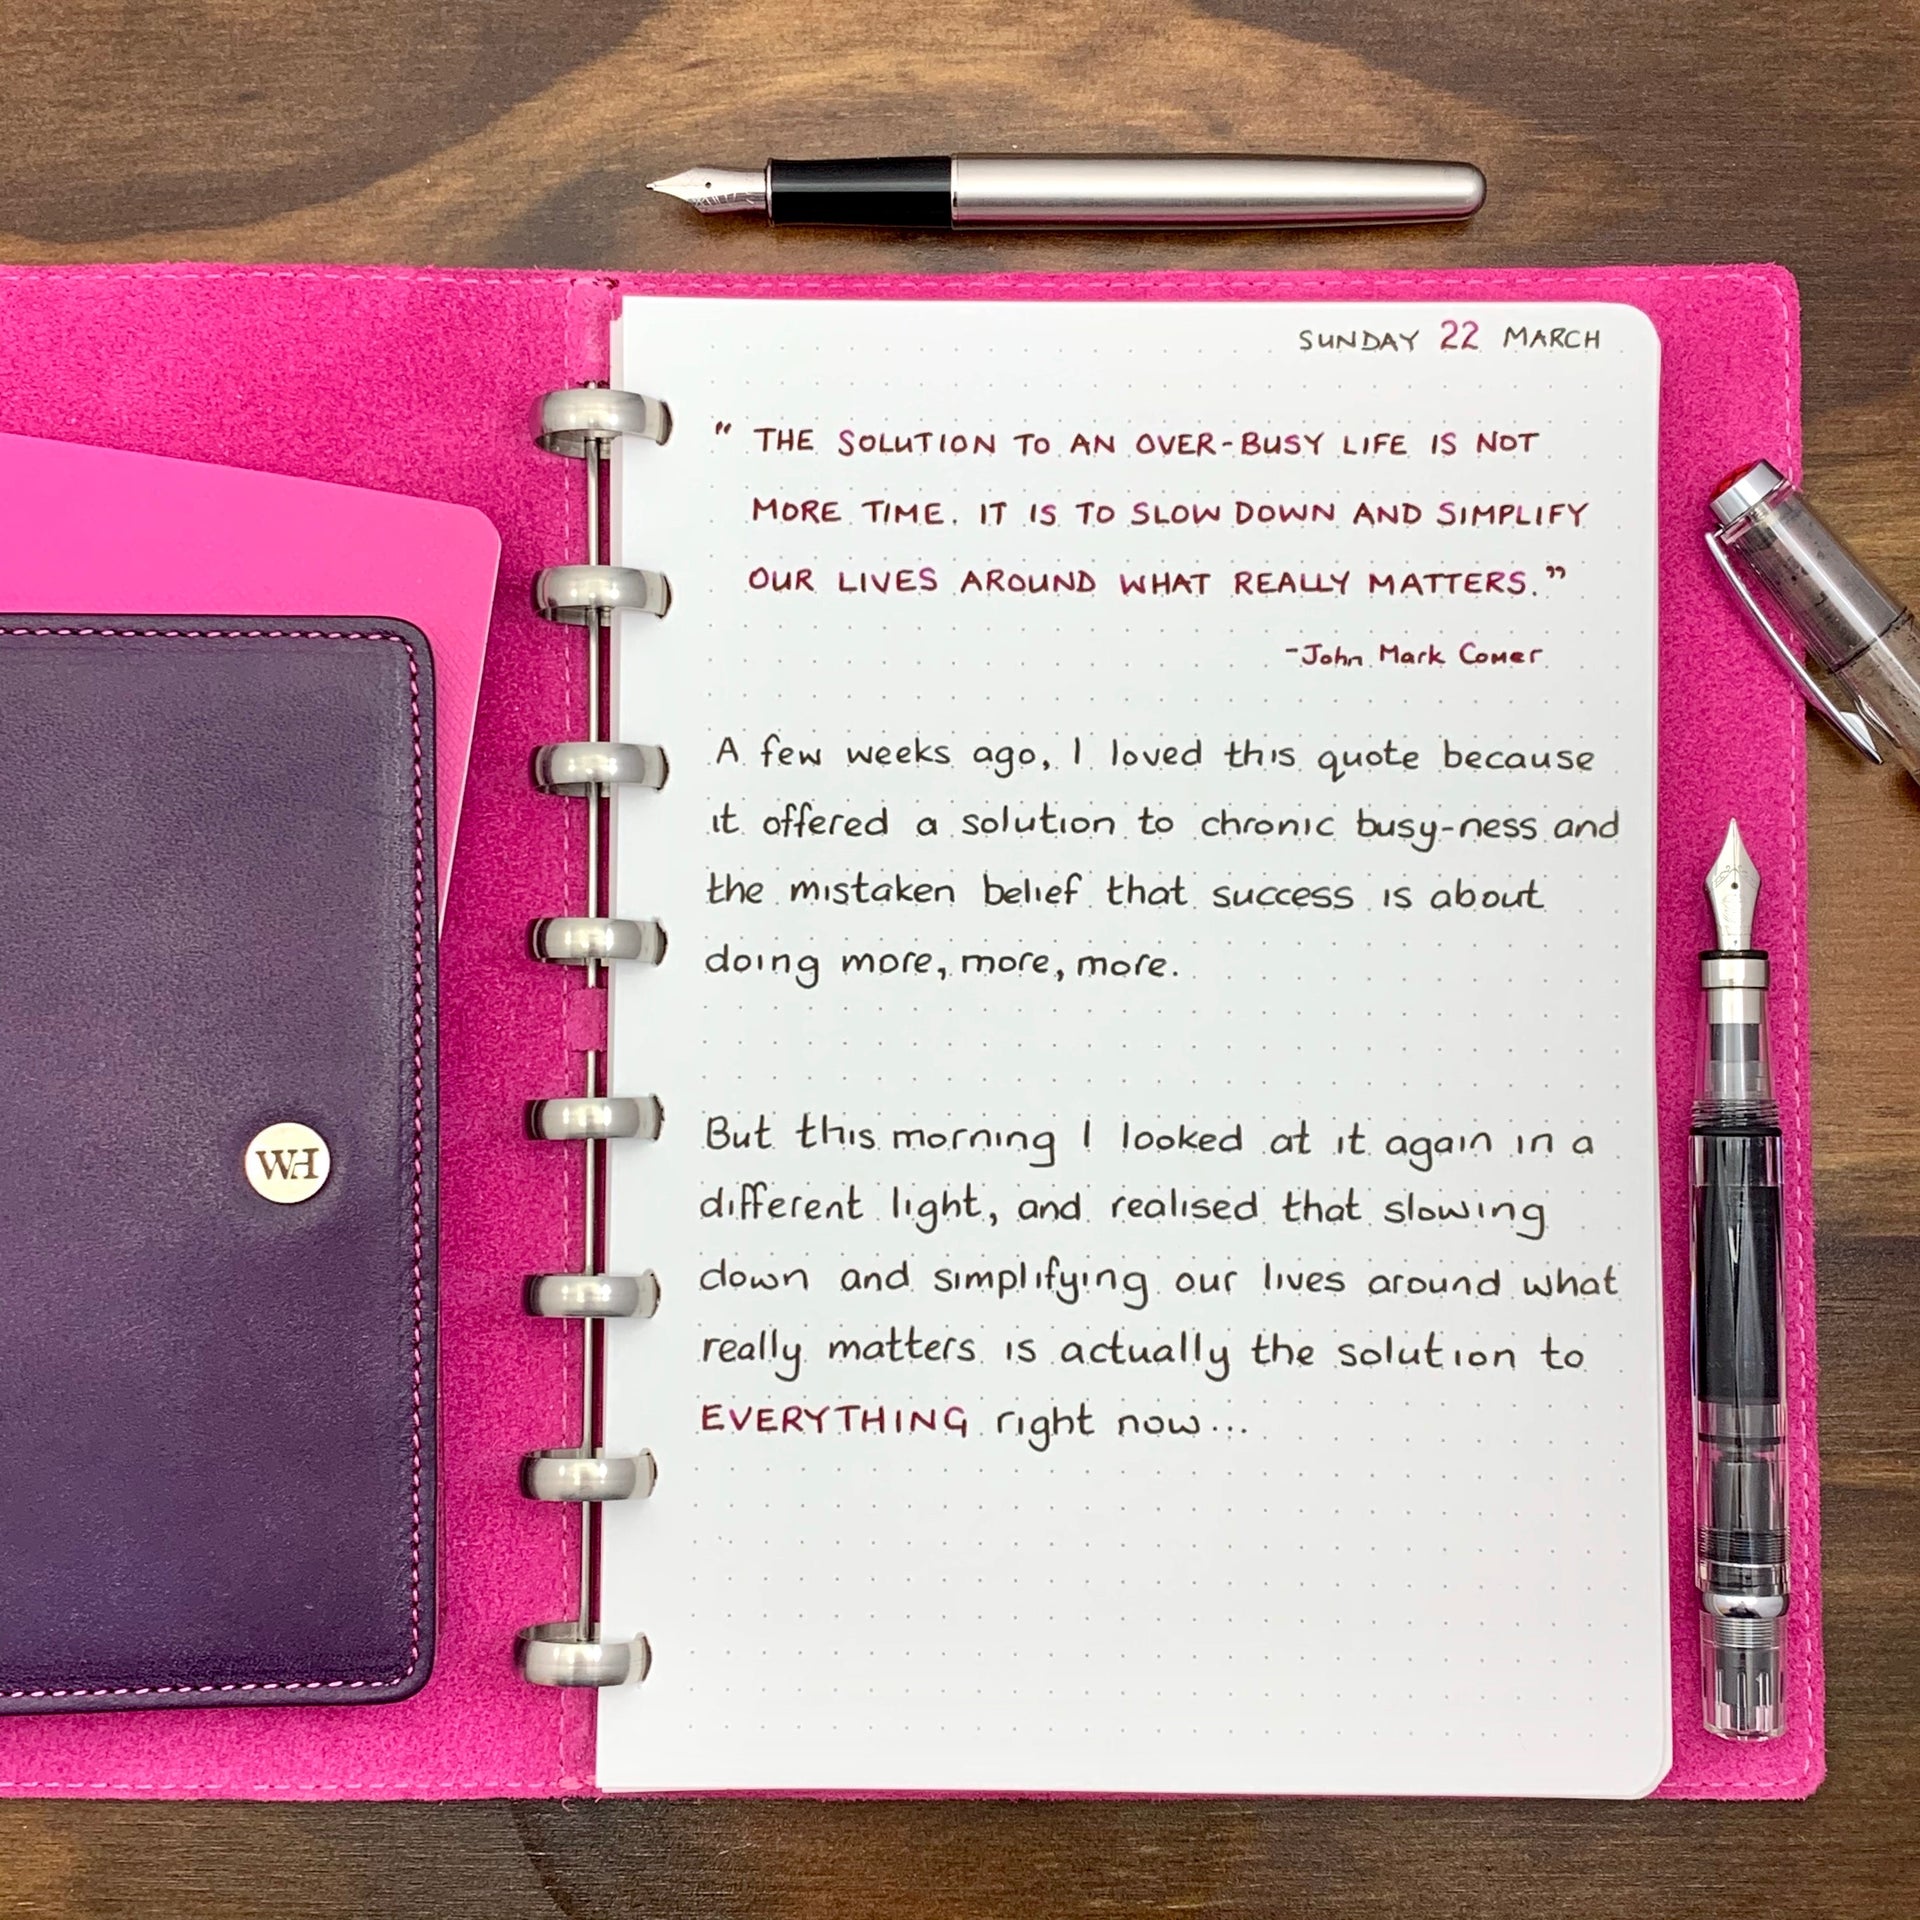 SUNDAY 22 MARCH
" THE SOLUTION TO AN OVER-BUSY LIFE IS NOT
MORE TIME. IT IS TO SLOW DOWN AND SIMPLIFY
OUR LIVES AROUND WHAT REALLY MATTERS."
-John Mark Comer
A few weeks ago, I loved this quote because
it offered a solution to chronic busy-ness and
the mistaken belief that success is about
doing more, more, more.
But this morning I looked at it again in a
different light, and realised that slowing
down and simplifying our lives around what
really matters is actually the solution to
EVERYTHING right now...
WH